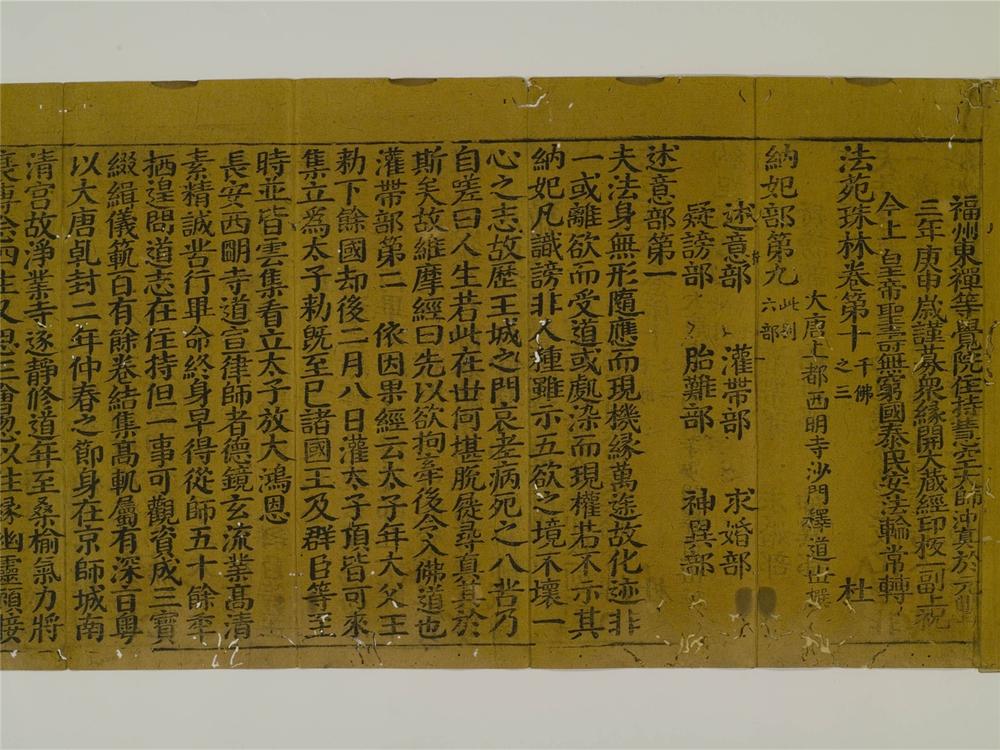 福州東禪等覺院住持慧空大師沖真於元豐
三年庚申歲謹募衆緣開大藏經印板一副上祝
今上 皇帝聖壽無窮國泰民安法輪常轉
法苑珠林卷第十 千佛之三 杜
大唐上都西明寺沙門釋道世撰
納妃部第九 此別六部
述意部 灌帶部 求婚部
疑謗部 胎難部 神異部
述意部第一
夫法身無形隨應而現機緣萬途故化迹非
一或離欲而受道或處染而現權若不示其
納妃凡識謗非人種雖示五欲之境不壞一
心之志故歷王城之門哀老病死之八苦乃
自嗟曰人生若此在世何堪脫屣尋真其於
斯矣故維摩經曰先以欲拘牽後令入佛道也
灌帶部第二 依因果經云太子年大父王
勑下餘國却後二月八日灌太子頂皆可來
集立為太子勑旣至已諸國王及群臣等至
時並皆雲集看立太子放大鴻恩
長安西明寺道宣律師者德鏡玄流業高清
素精誠苦行畢命終身早得從師五十餘年
栖遑問道志在住持但一事可觀資成三寶
綴緝儀範百有餘卷結集高軌屬有深百粤
以大唐乹封二年仲春之節身在京師城南
清宮故淨業寺逐靜修道年至桑榆氣力將